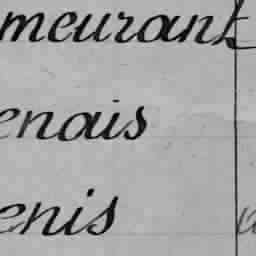 meurant
enais
enis